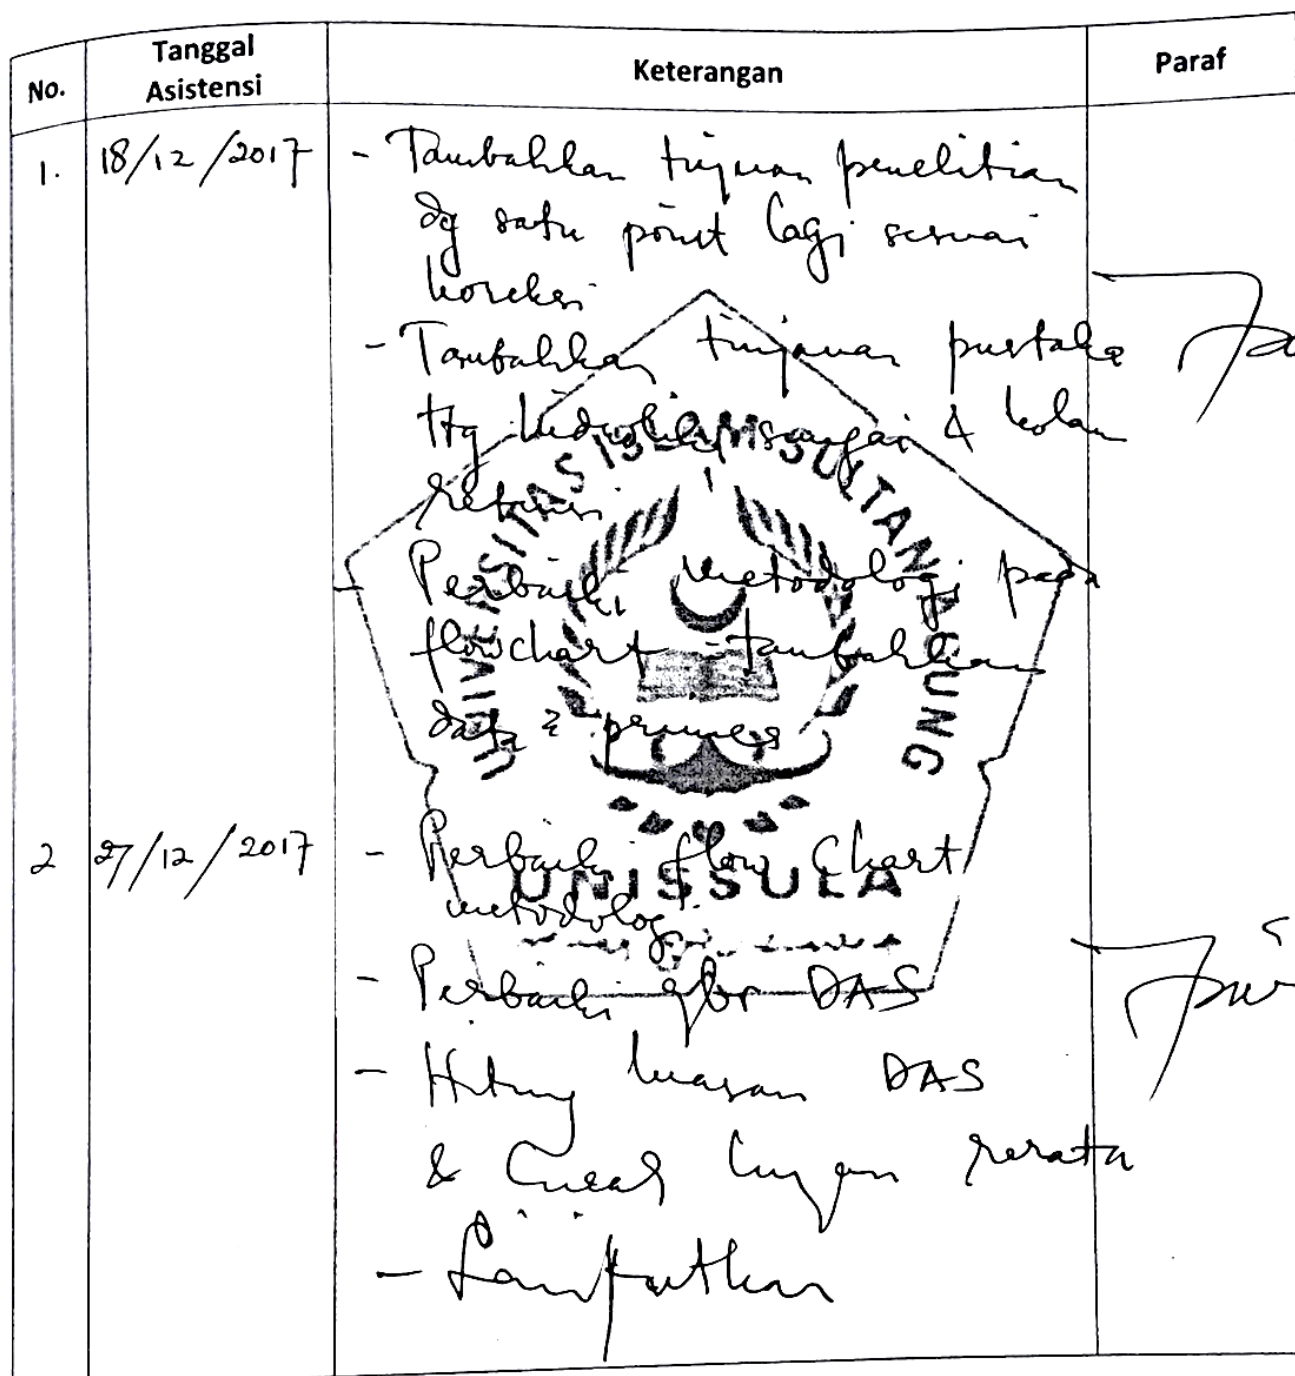 No.
Tanggal Asistensi
Keterangan
Paraf
1.
18/12/2017
- Tambahkan tujuan penelitian
dg satu point lagi sesuai
koreksi
- Tambahkan tinjauan pustaka
ttg hidrolika sungai & kolam
retensi
- Perbaiki metodologi pada
flowchart tambahkan
data2 primer
2
27/12/2017
- Perbaiki flow Chart
metodologi
- Perbaiki gbr DAS
- Hitung luasan DAS
& Curah hujan rerata
- Lanjutkan
UNIVERSITAS ISLAM SULTAN AGUNG
UNISSULA